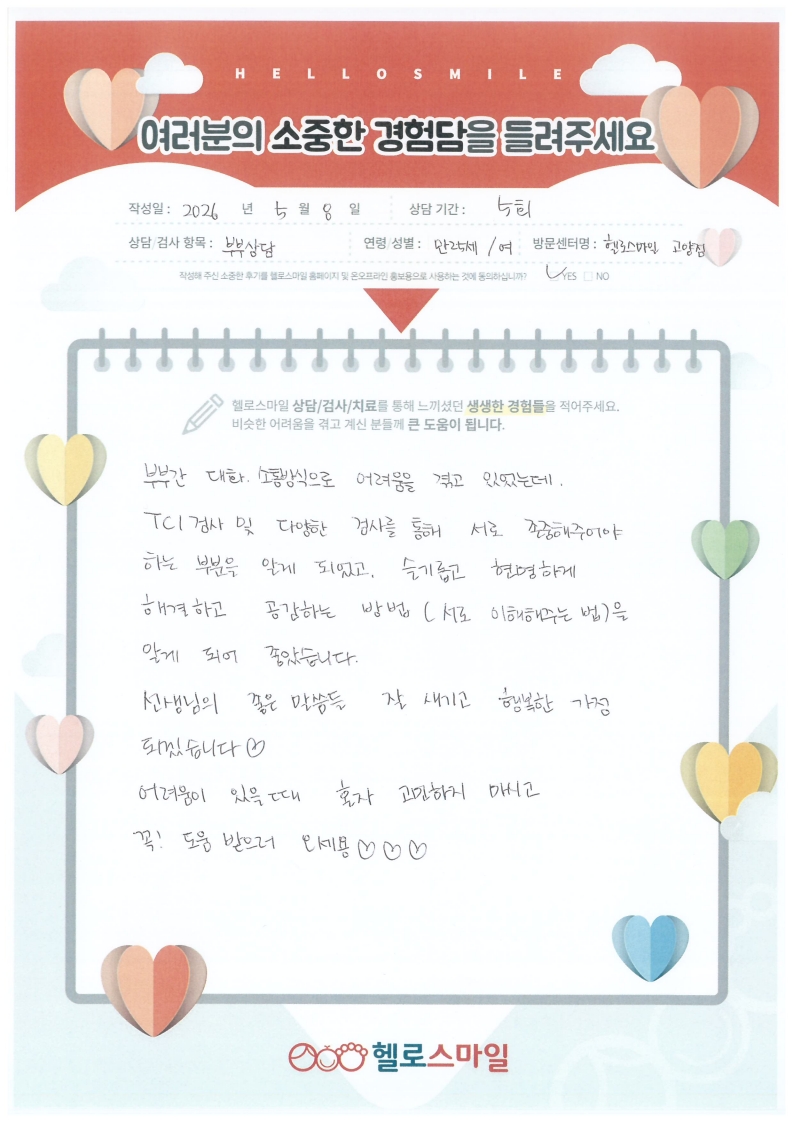 HELLOSMILE
여러분의 소중한 경험담을 들려주세요
작성일 : 2026 년 5 월 8 일 상담 기간 : 5회
상담/검사 항목 : 부부상담 연령/성별 : 만25세 / 여 방문센터명 : 헬로스마일 고양점
작성해 주신 소중한 후기를 헬로스마일 홈페이지 및 온오프라인 홍보용으로 사용하는 것에 동의하십니까? ✓YES □ NO
헬로스마일 상담/검사/치료를 통해 느끼셨던 생생한 경험들을 적어주세요.
비슷한 어려움을 겪고 계신 분들께 큰 도움이 됩니다.
부부간 대화. 소통방식으로 어려움을 겪고 있었는데.
TCI 검사 및 다양한 검사를 통해 서로 존중해주어야
하는 부분을 알게 되었고, 슬기롭고 현명하게
해결하고 공감하는 방법 (서로 이해해주는 법)을
알게 되어 좋았습니다.
선생님의 좋은 말씀들 잘 새기고 행복한 가정
되겠습니다♡
어려움이 있을 때 혼자 고민하지 마시고
꼭! 도움 받으러 오세용♡♡♡
헬로스마일